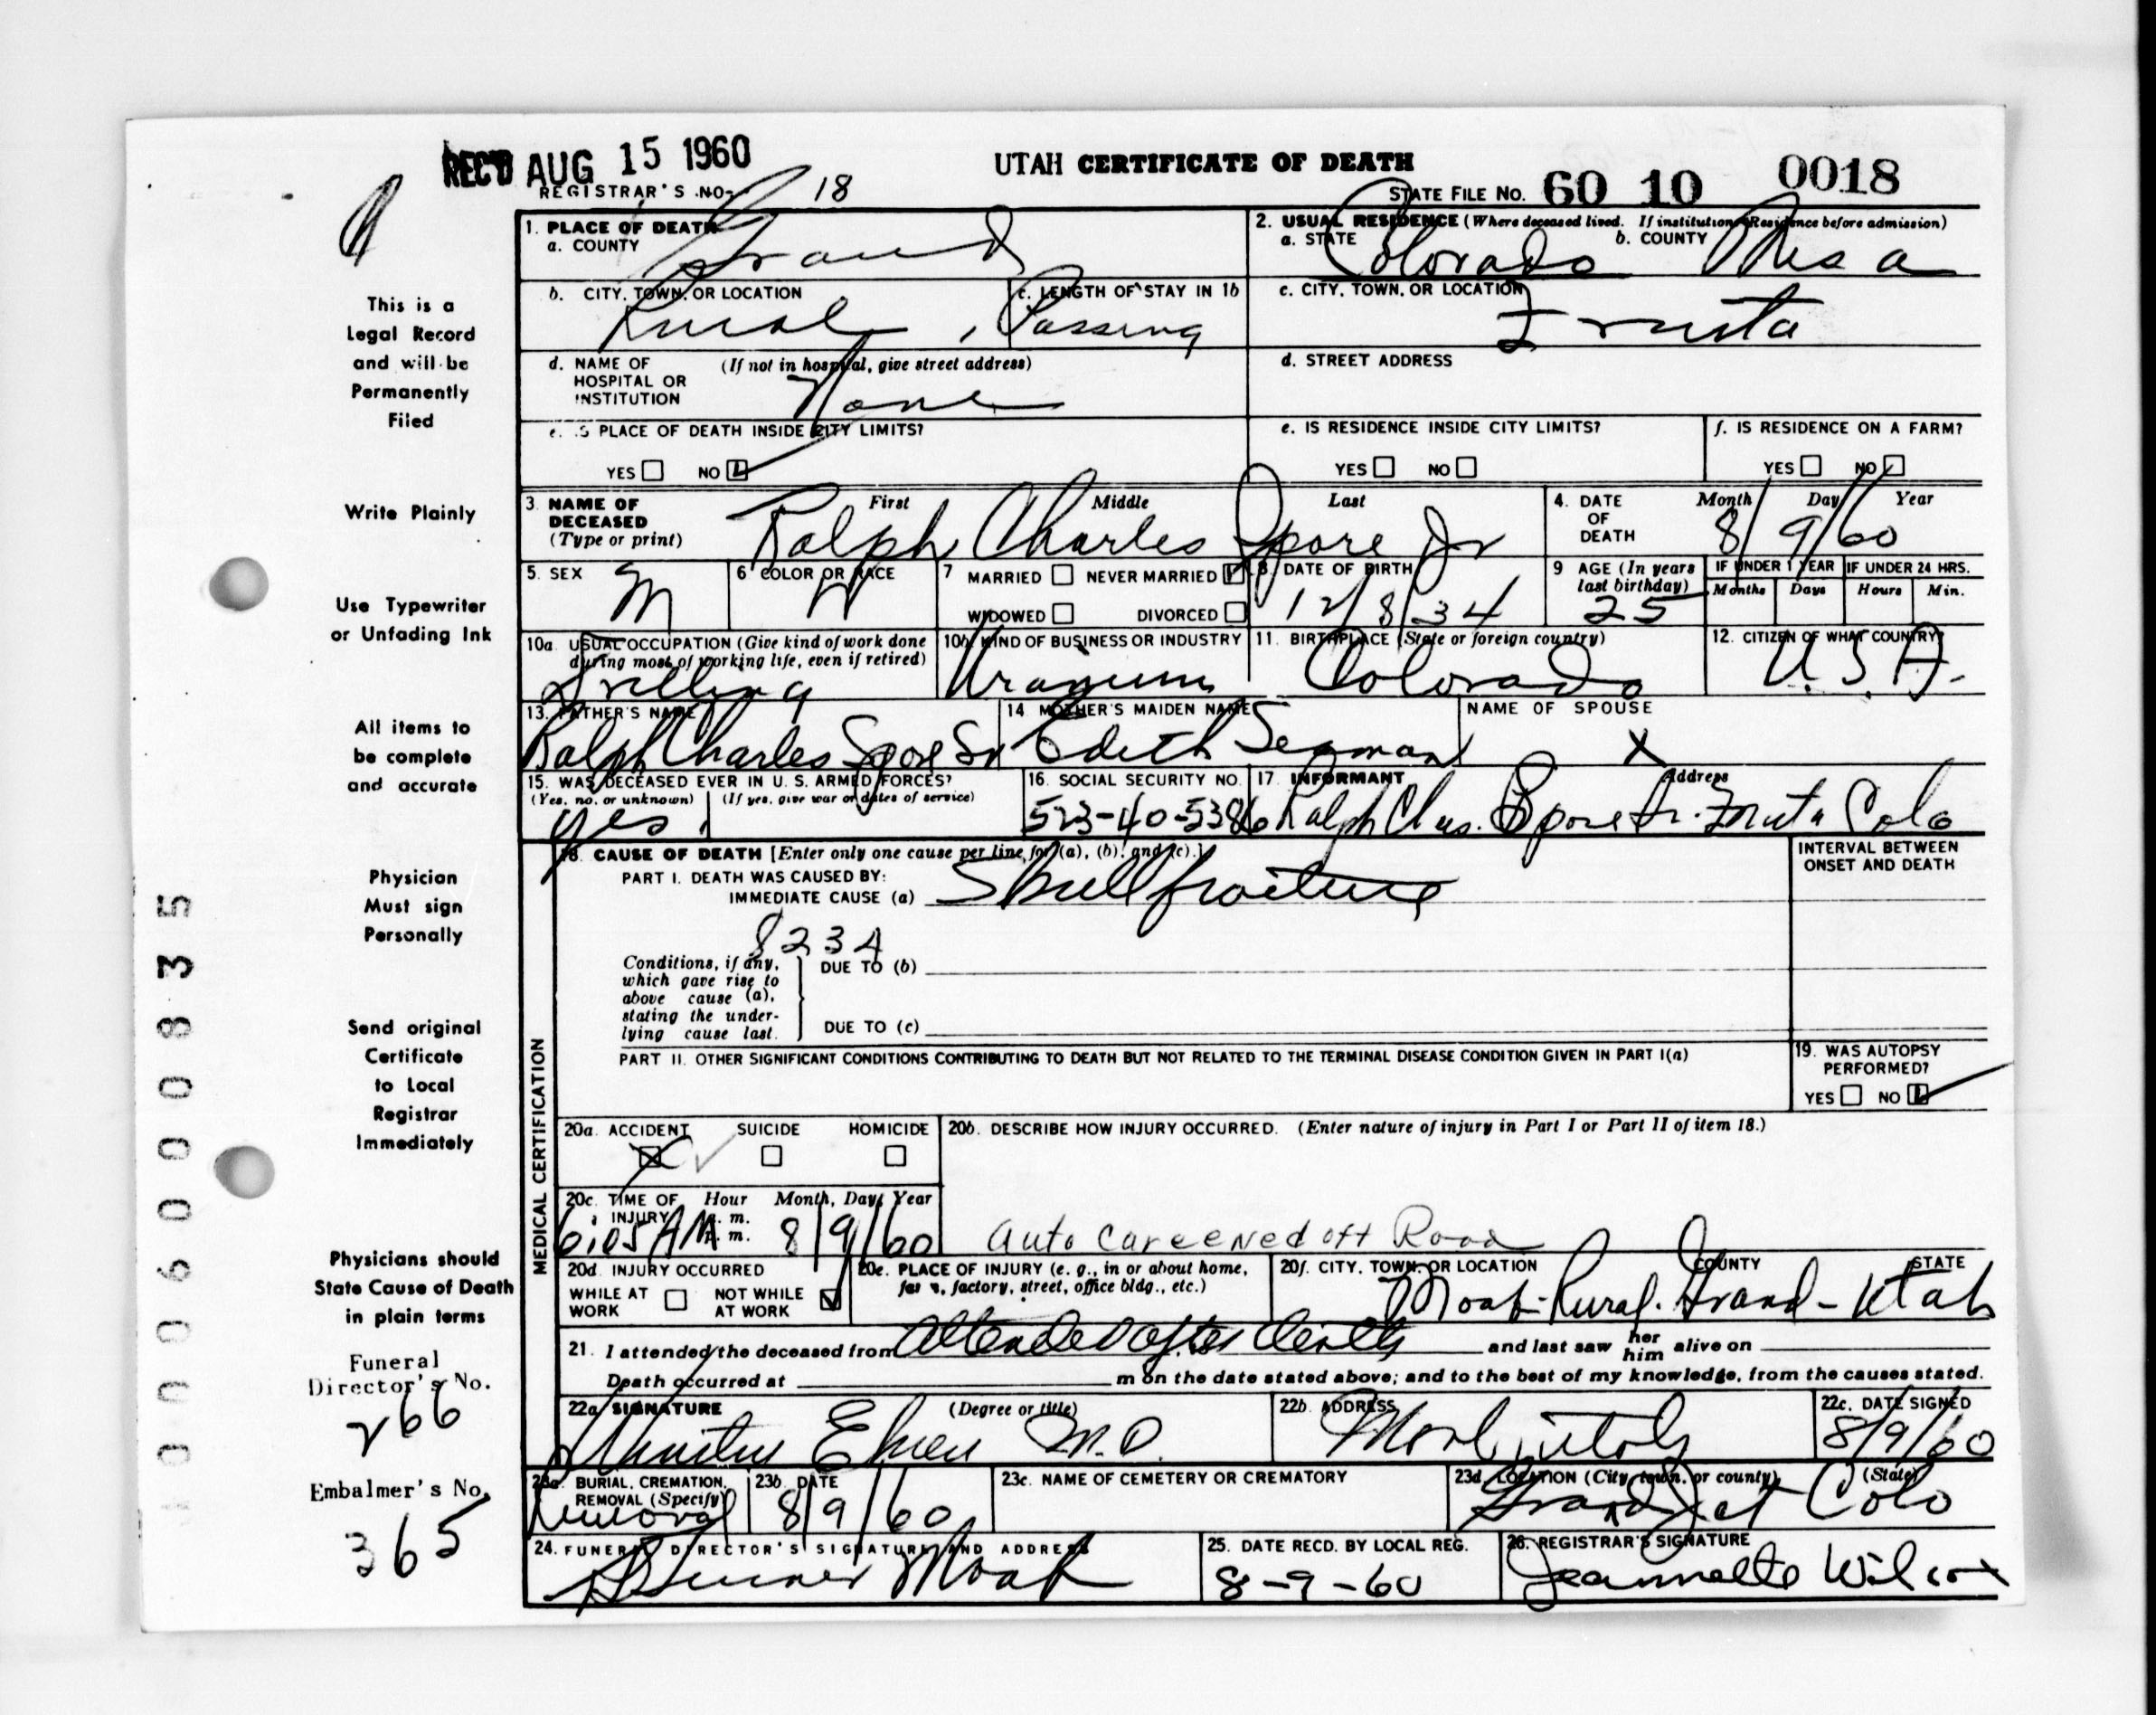 REC'D AUG 15 1960
UTAH CERTIFICATE OF DEATH
REGISTRAR'S NO. 18
STATE FILE No. 60 10 0018
This is a
Legal Record
and will be
Permanently
Filed
Write Plainly
Use Typewriter
or Unfading Ink
All items to
be complete
and accurate
Physician
Must sign
Personally
Send original
Certificate
to Local
Registrar
Immediately
Physicians should
State Cause of Death
in plain terms
Funeral
Director's No.
266
Embalmer's No.
365
0006000835
1. PLACE OF DEATH
a. COUNTY Grand
2. USUAL RESIDENCE (Where deceased lived. If institution: Residence before admission)
a. STATE Colorado b. COUNTY Mesa
b. CITY, TOWN, OR LOCATION Rural
c. LENGTH OF STAY IN 1b Passing
c. CITY, TOWN, OR LOCATION Fruita
d. NAME OF HOSPITAL OR INSTITUTION (If not in hospital, give street address) None
d. STREET ADDRESS
e. IS PLACE OF DEATH INSIDE CITY LIMITS?
YES NO
e. IS RESIDENCE INSIDE CITY LIMITS?
YES NO
f. IS RESIDENCE ON A FARM?
YES NO
3. NAME OF DECEASED (Type or print) First Middle Last
Ralph Charles Spore Jr
4. DATE OF DEATH Month Day Year
8/9/60
5. SEX M
6 COLOR OR RACE W
7 MARRIED NEVER MARRIED
WIDOWED DIVORCED
8 DATE OF BIRTH 12/8/34
9 AGE (In years last birthday) 25
IF UNDER 1 YEAR Months Days
IF UNDER 24 HRS. Hours Min.
10a. USUAL OCCUPATION (Give kind of work done during most of working life, even if retired) Drilling
10b. KIND OF BUSINESS OR INDUSTRY Uranium
11. BIRTHPLACE (State or foreign country) Colorado
12. CITIZEN OF WHAT COUNTRY? U.S.A.
13. FATHER'S NAME Ralph Charles Spore Sr
14 MOTHER'S MAIDEN NAME Edith Seaman
NAME OF SPOUSE X
15. WAS DECEASED EVER IN U. S. ARMED FORCES?
(Yes, no, or unknown) (If yes, give war or dates of service)
yes
16. SOCIAL SECURITY NO. 523-40-5386
17. INFORMANT Address
Ralph Chas. Spore Sr. Fruita Colo
MEDICAL CERTIFICATION
18. CAUSE OF DEATH [Enter only one cause per line for (a), (b), and (c).]
INTERVAL BETWEEN ONSET AND DEATH
PART I. DEATH WAS CAUSED BY:
IMMEDIATE CAUSE (a) Skull fracture
8234
Conditions, if any, which gave rise to above cause (a), stating the underlying cause last.
DUE TO (b)
DUE TO (c)
PART II. OTHER SIGNIFICANT CONDITIONS CONTRIBUTING TO DEATH BUT NOT RELATED TO THE TERMINAL DISEASE CONDITION GIVEN IN PART I(a)
19. WAS AUTOPSY PERFORMED?
YES NO
20a. ACCIDENT SUICIDE HOMICIDE
20b. DESCRIBE HOW INJURY OCCURRED. (Enter nature of injury in Part I or Part II of item 18.)
Auto Careened off Road
20c. TIME OF INJURY Hour Month, Day, Year
6:05 AM 8/9/60
20d. INJURY OCCURRED
WHILE AT WORK NOT WHILE AT WORK
20e. PLACE OF INJURY (e. g., in or about home, farm, factory, street, office bldg., etc.)
20f. CITY, TOWN, OR LOCATION COUNTY STATE
Moab-Rural. Grand - Utah
21. I attended the deceased from Attended after death and last saw her him alive on
Death occurred at m on the date stated above; and to the best of my knowledge, from the causes stated.
22a SIGNATURE (Degree or title)
M.D.
22b. ADDRESS Moab, Utah
22c. DATE SIGNED 8/9/60
23a. BURIAL, CREMATION, REMOVAL (Specify) Removal
23b. DATE 8/9/60
23c. NAME OF CEMETERY OR CREMATORY
23d. LOCATION (City, town, or county) (State)
Grand Jct Colo
24. FUNERAL DIRECTOR'S SIGNATURE AND ADDRESS
Moab
25. DATE RECD. BY LOCAL REG. 8-9-60
26. REGISTRAR'S SIGNATURE Jeannette Wilcox